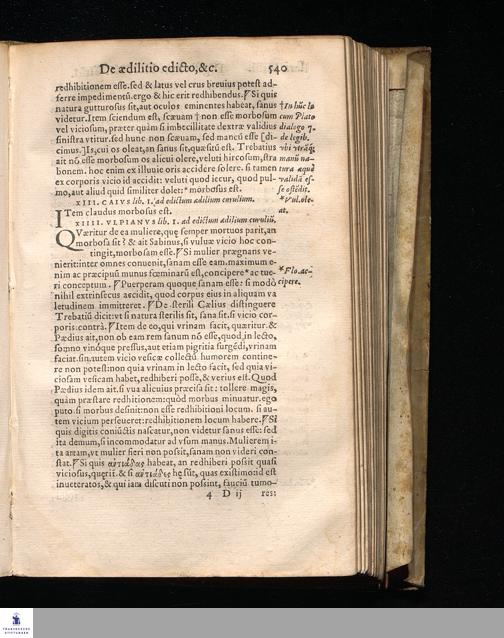 De ædilitio edicto, &c. 540
redhibitionem esse. sed & latus vel crus breuius potest ad-
ferre impedimentũ. ergo & hic erit redhibendus. Si quis
natura gutturosus sit, aut oculos eminentes habeat, sanus
videtur. Item sciendum est, scæuam † non esse morbosum
vel viciosum, præter quàm si imbecillitate dextræ validius
sinistra vtitur. sed hunc non scæuam, sed mancũ esse [di-
cimus.] Is, cui os oleat, an sanus sit, quæsitũ est. Trebatius
ait nõ esse morbosum os alicui olere, veluti hircosum, stra
bonem. hoc enim ex illuuie oris accidere solere. si tamen
ex corporis vicio id accidit: veluti quod iecur, quod pul-
mo, aut aliud quid similiter dolet: * morbosus est.
XIII. CAIVS lib. I. ad edictum ædilium curulium.
ITem claudus morbosus est.
XIIII. VLPIANVS lib. I. ad edictum ædilium curuliũ.
QVæritur de ea muliere, que semper mortuos parit, an
morbosa sit? & ait Sabinus, si vuluæ vicio hoc con-
tingit, morbosam esse. Si mulier prægnans ve-
nierit inter omnes conuenit, sanam esse eam. maximum e-
nim ac præcipuũ munus fœminarũ est, concipere * ac tue-
ri conceptum. Puerperam quoque sanam esse: si modò
nihil extrinsecus accidit, quod corpus eius in aliquam va
letudinem immitteret. De sterili Cælius distinguere
Trebatiũ dicit: vt si natura sterilis sit, sana sit. si vicio cor-
poris: contrà. Item de eo, qui vrinam facit, quæritur. &
Pædius ait, non ob eam rem sanum nõ esse, quod in lecto,
somno vinóque pressus, aut etiam pigritia surgẽdi, vrinam
faciat. sin autem vicio vesicæ collectũ humorem contine-
re non potest: non quia vrinam in lecto facit, sed quia vi-
ciosam vesicam habet, redhiberi posse, & verius est. Quod
Pædius idem ait. si vua alicuius præcisa sit: tollere magis,
quàm præstare redhitionem: quòd morbus minuatur. ego
puto. si morbus desinit: non esse redhibitioni locum. si au-
tem vicium perseueret: redhibitionem locum habere. Si
quis digitis coniũctis nascatur, non videtur sanus esse: sed
ita demum, si incommodatur ad vsum manus. Mulierem i-
ta arctam, vt mulier fieri non possit, sanam non videri con-
stat. Si quis ἀντιάδας habeat, an redhiberi possit quasi
viciosus, querit̃. & si ἀντιάδες hę sũt, quas existimo id est
inueteratos, & qui iam discuti non possint, fauciũ tumo-
4 D ij res:
† In hũc lo
cum Plato
dialogo 7.
de legib.
vbi vtráq;
manũ na-
tura æquè
validã es-
se ostẽdit.
* Vul. ole-
at.
* Flo. ac-
cipere.
FRANCKESCHE
STIFTUNGEN